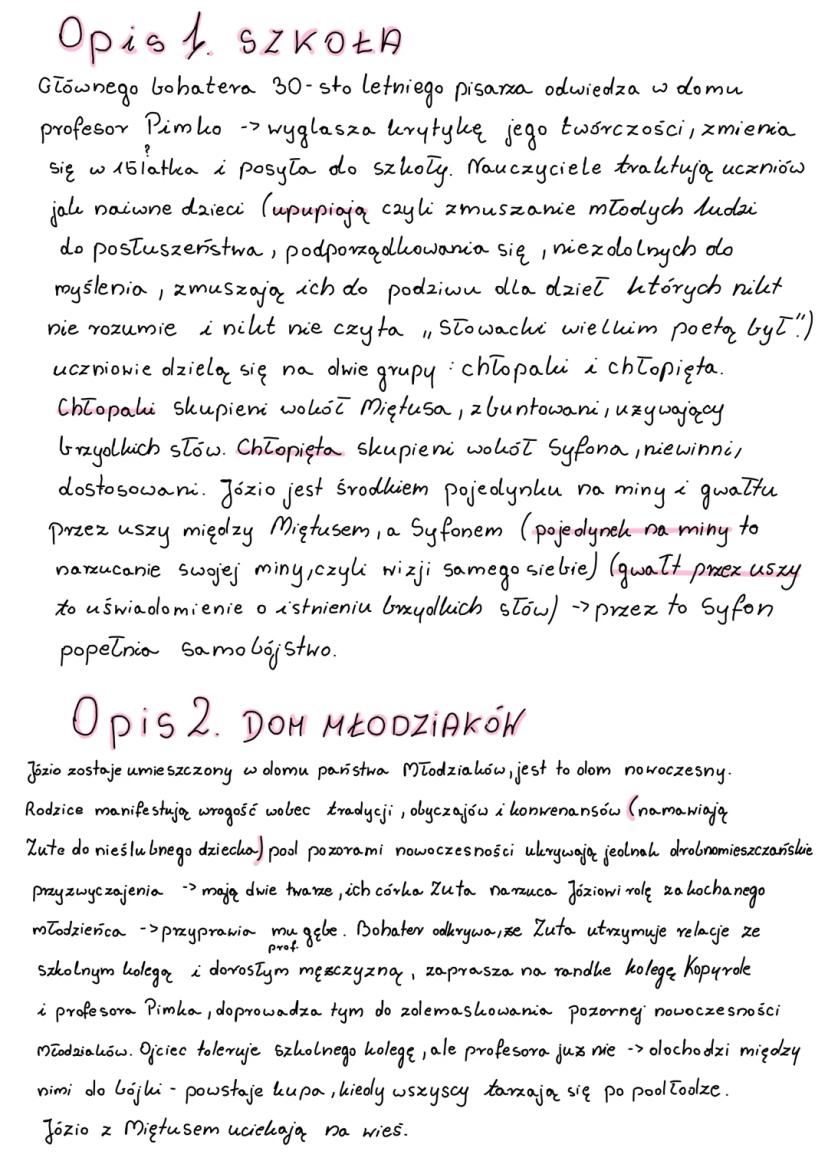 Opis 1. SZKOŁA
Głównego bohatera 30-sto letniego pisarza odwiedza w domu
profesor Pimko -> wygłasza krytykę jego twórczości, zmienia
?
się w 15latka i posyła do szkoły. Nauczyciele traktują uczniów
jak naiwne dzieci (upupiają czyli zmuszanie młodych ludzi
do posłuszeństwa, podporządkowania się, niezdolnych do
myślenia, zmuszają ich do podziwu dla dzieł których nikt
nie rozumie i nikt nie czyta „Słowacki wielkim poetą był".)
uczniowie dzielą się na dwie grupy : chłopaki i chłopięta.
Chłopaki skupieni wokół Miętusa, zbuntowani, używający
brzydkich słów. Chłopięta skupieni wokół Syfona, niewinni,
dostosowani. Józio jest środkiem pojedynku na miny i gwałtu
przez uszy między Miętusem, a Syfonem (pojedynek na miny to
narzucanie swojej miny, czyli wizji samego siebie) (gwałt przez uszy
to uświadomienie o istnieniu brzydkich słów) -> przez to Syfon
popełnia samobójstwo.
Opis 2. DOM MŁODZIAKÓW
Józio zostaje umieszczony w domu państwa Młodziaków, jest to dom nowoczesny.
Rodzice manifestują wrogość wobec tradycji, obyczajów i konwenansów (namawiają
Zute do nieślubnego dziecka) pod pozorami nowoczesności ukrywają jednak drobnomieszczańskie
przyzwyczajenia -> mają dwie twarze, ich córka Zuta narzuca Józiowi rolę zakochanego
młodzieńca -> przyprawia mu gębe. Bohater odkrywa, że Zuta utrzymuje relacje ze
prof.
szkolnym kolegą i dorosłym mężczyzną, zaprasza na randke kolegę Kopyrde
i profesora Pimka, doprowadza tym do zdemaskowania pozornej nowoczesności
Młodziaków. Ojciec toleruje szkolnego kolegę, ale profesora już nie -> dochodzi między
nimi do bójki - powstaje kupa, kiedy wszyscy tarzają się po podłodze.
Józio z Miętusem uciekają na wieś.